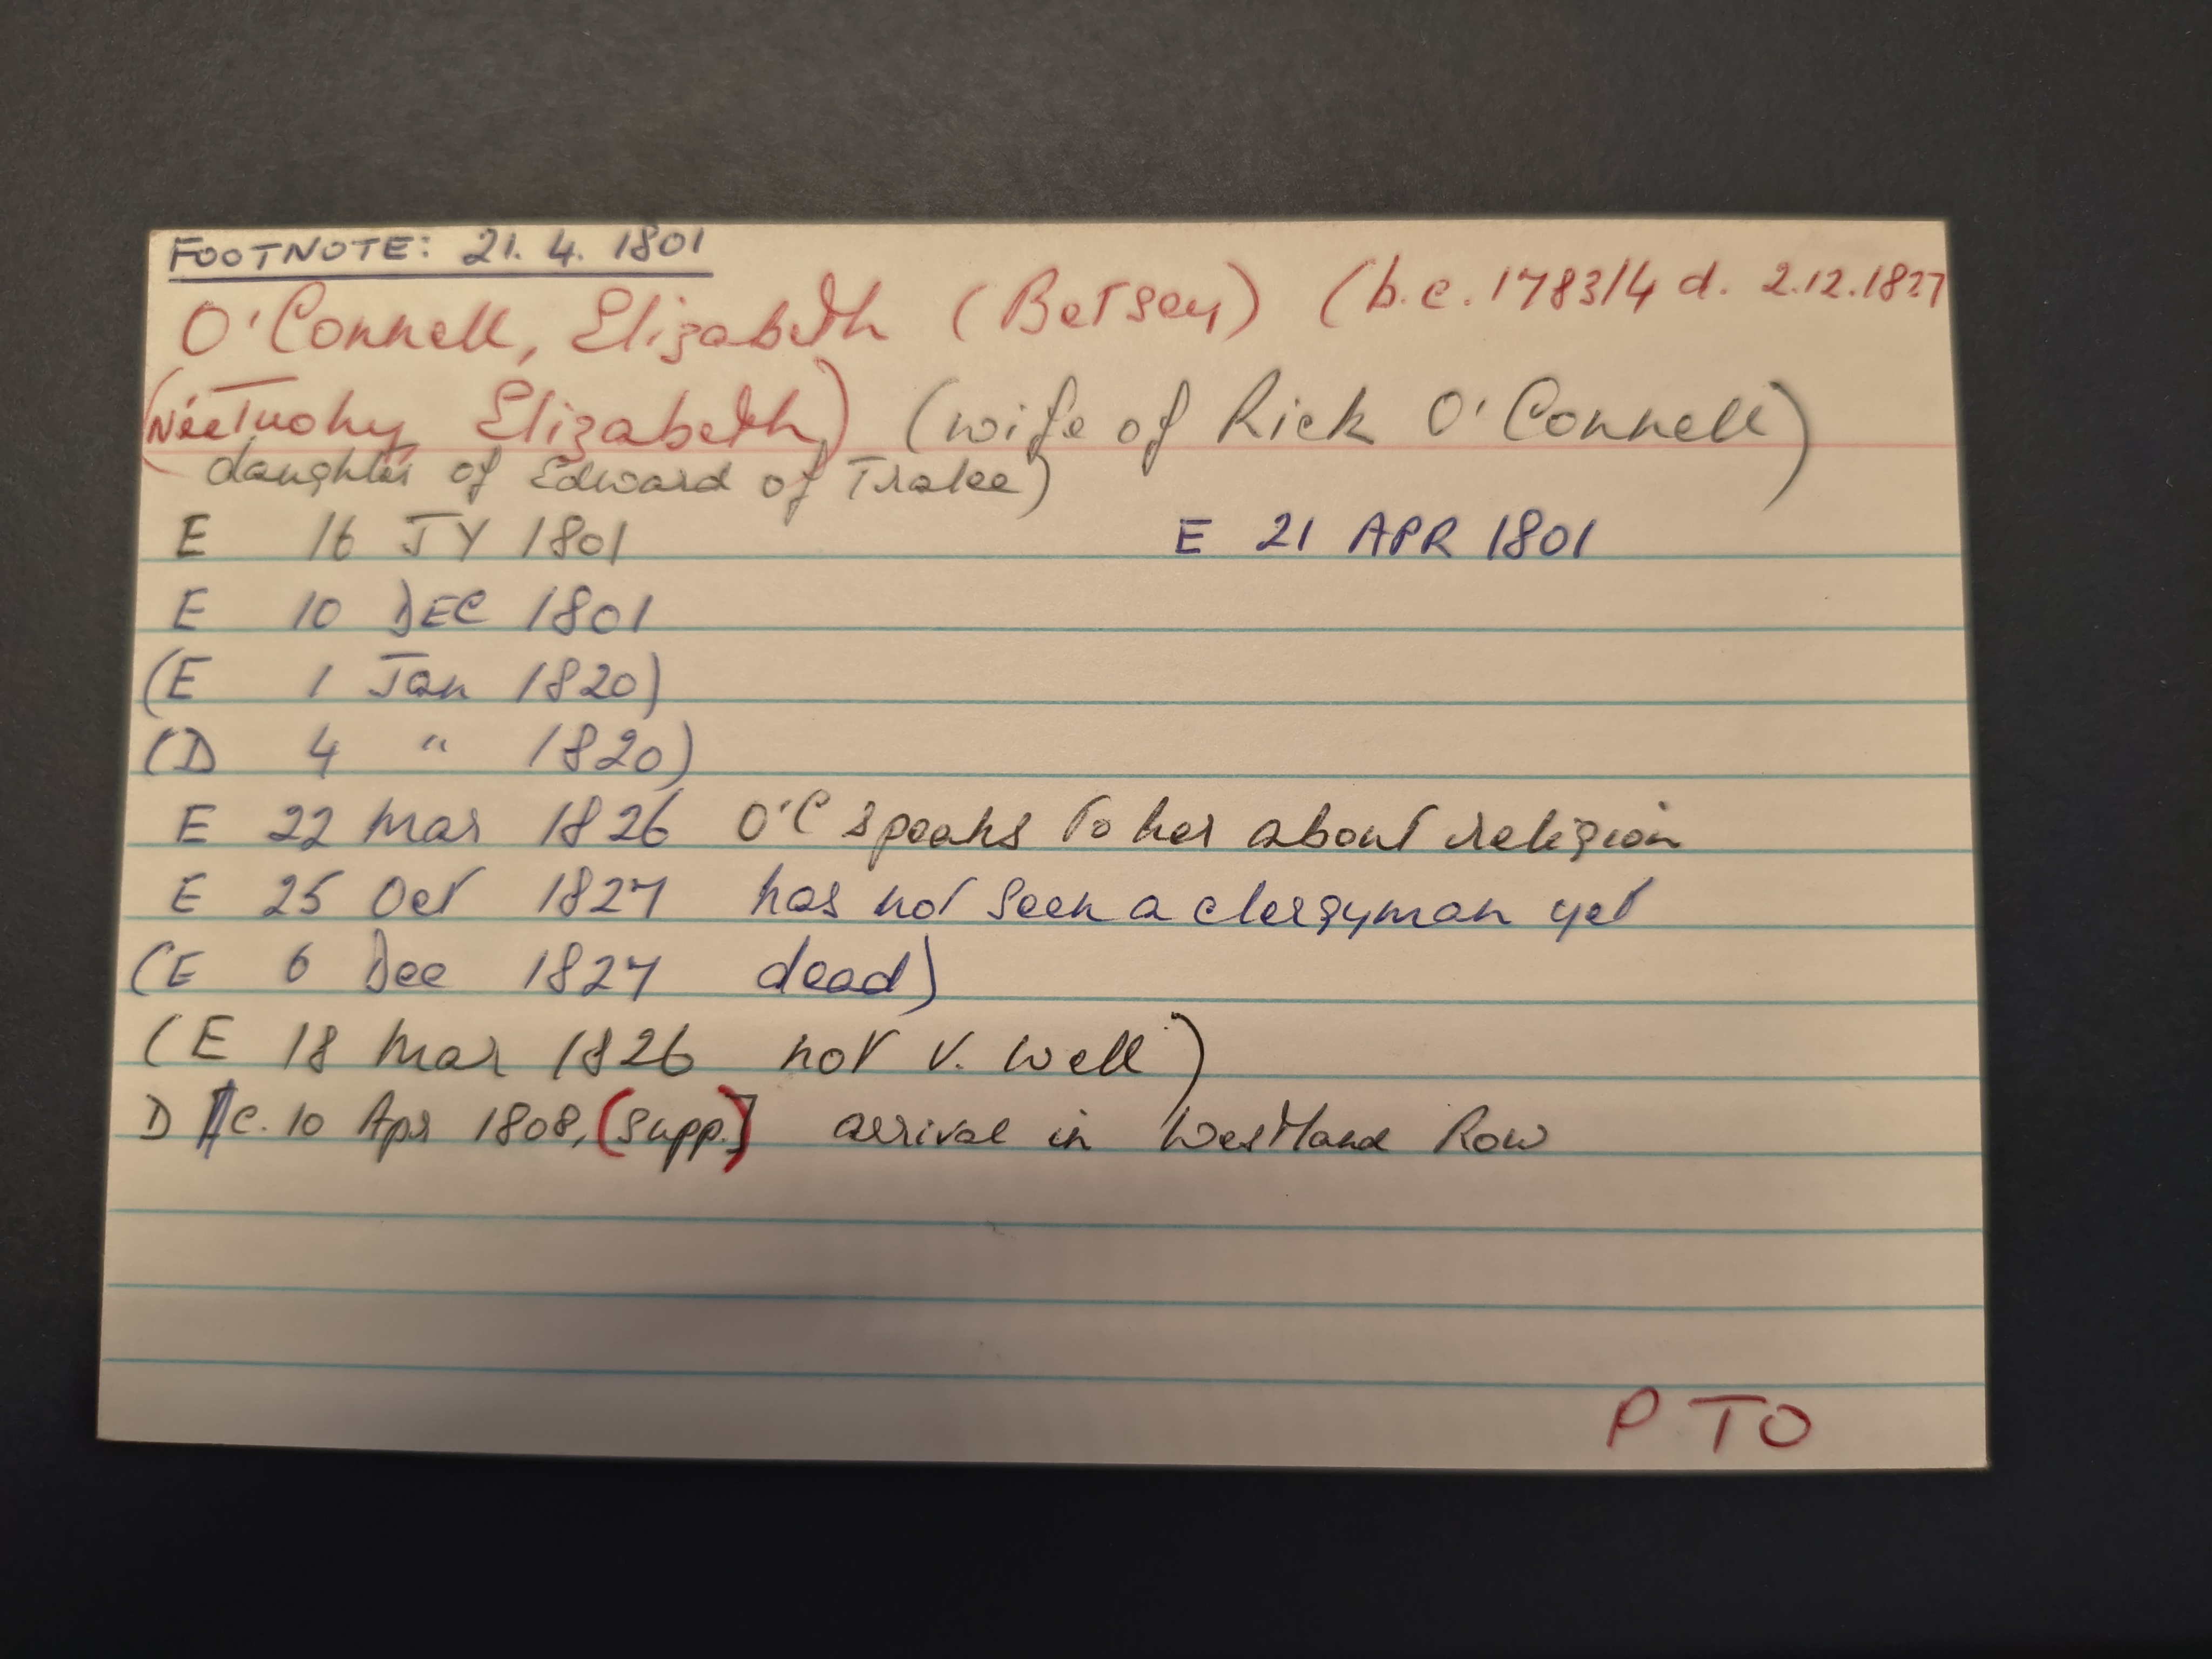 FOOTNOTE: 21. 4. 1801
O'Connell, Elizabeth (Betsey) (b.c. 1783/4 d. 2.12.1827
(née Tuohy Elizabeth) (wife of Rick O'Connell)
daughter of Edward of Tralee)
E 16 JY 1801 E 21 APR 1801
E 10 DEC 1801
(E 1 Jan 1820)
(D 4 " 1820)
E 22 Mar 1826 O'C speaks to her about religion
E 25 Oct 1827 has not seen a clergyman yet
(E 6 Dec 1827 dead)
(E 18 Mar 1826 not v. well)
D [c. 10 Apr 1808, (Supp.)] arrival in Westland Row
PTO